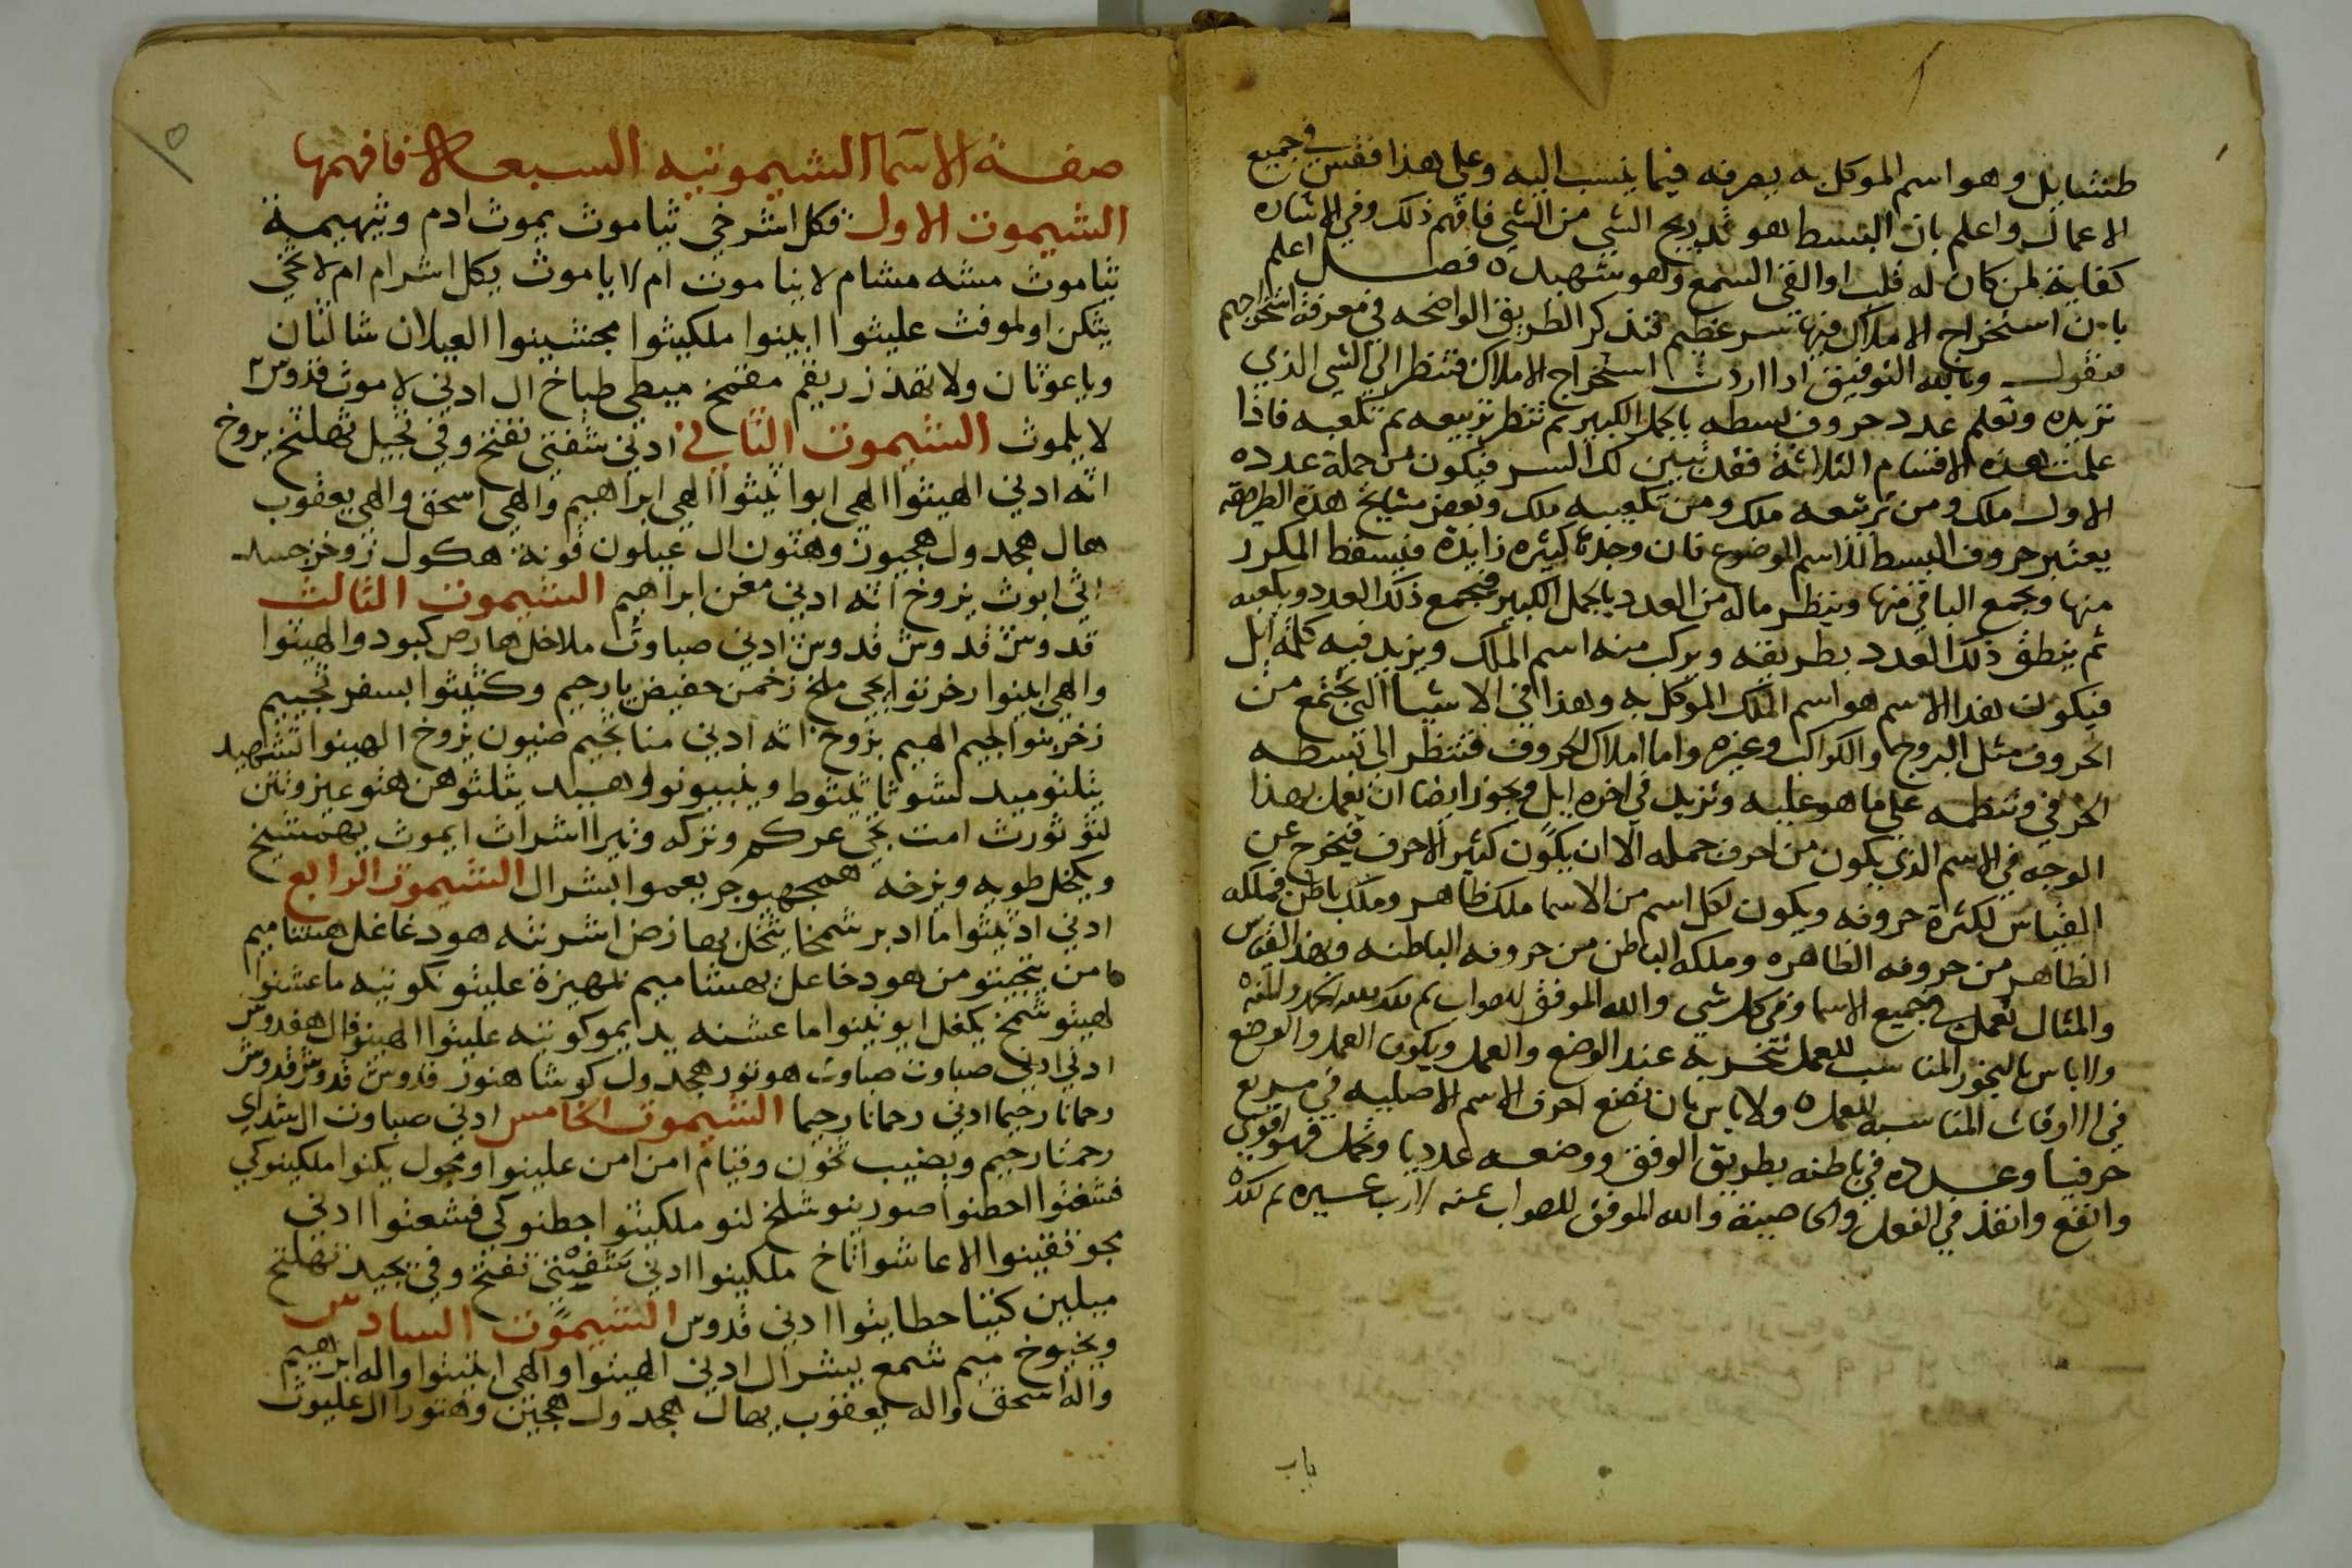 طنشايل وهو اسم الموكل به يصرفه فيما ينسب اليه وعلى هذا فقس في جميع
الاعمال واعلم بان البسط هو تدريج الشي من الشي فافهم ذلك وفي الاشاره
كفاية لمن كان له قلب او القى السمع وهو شهيد ه فصل اعلم
بان استخراج الاملاك فيها سر عظيم فنذكر الطريق الواضحه في معرفة استخراجهم
فنقول وبالله التوفيق اذا اردت استخراج الاملاك فتنظر الي الشي الذي
تريده وتعلم عدد حروف بسطه بالجمل الكبير ثم تنظر تربيعه ثم تكعيبه فاذا
علمت هذه الاقسام الثلاثة فقد تبين لك السر فيكون من جملة عدده
الاول ملك ومن تربيعه ملك ومن تكعيبه ملك وبعض مشايخ هذه الطريقه
يعتبر حروف البسط للاسم الموضوع فان وجدها كثيره زايدة فيسقط المكرر
منها ويجمع الباقي منها وينظر ماله من العدد بالجمل الكبير فيجمع ذلك العدد ويلعبه
ثم ينطق ذلك العدد بطريقه ويركب منه اسم الملك ويزيد فيه كلمة ايل
فيكون هذا الاسم هو اسم الملك الموكل به وهذا في الاشيا التي تجتمع من
الحروف مثل البروج والكواكب وغيره واما املاك الحروف فتنظر الى بسطه
الحرفي وتنظمه على ما هو عليه وتزيد في اخره ايل ويجوز ايضا ان تعمل بهذا
الوجه في الاسم الذي يكون من احرف جمله الا ان يكون كثير الاحرف فيخرج عن
القياس لكثرة حروفه ويكون لكل اسم من الاسما ملك ظاهر وملك باطن فملكه
الظاهر من حروفه الظاهره وملكه الباطن من حروفه الباطنه وبهذا القياس
والمثال تعمل في جميع الاسما وفي كل شي والله الموفق للصواب تم ذلك الحمد والمنه
والاباس بالبخور المناسب للعمل تبخر به عند الوضع والعمل ويكون العمل والوضع
في الاوقات المناسبه للعمل ه ولا باس بان تضع احرف الاسم الاصليه في مربع
حرفيا وعدده في باطنه بطريق الوفق ووضعه عدديا وتمل فهو اقوى
وانفع وانفذ في الفعل والخاصية والله الموفق للصواب بمنه لا رب غيره تم
باب
صفة الاسما الشيموتيه السبعه فافهمها
الشيموت الاول فكل اشرخي تياموث يموث ادم وبثهيمة
تياموث مشه مشام لا يناموت ام لا ياموث يكل اشرام ام لا يخي
يتكن اولموفث عليثوا ايلنوا ملكيثوا مجنشينوا العيلان شالثان
وباعوثان ولا نفذ زريقم مفتمخ مبيطي طباخ ال ادني لاموث قدوس
لايلموث الشيموت الثاني ادني شفتي تفتخ وفي نجيل تهلتخ بروخ
اته ادني الهينوا الهي ابوا تيثوا الهي ابراهيم والهي اسحق والهي يعقوب
هال هجدول هجبور وهنون ال عيلون قونة هكول زوخر حسد
الي ابوث بروخ اته ادني مغن ابراهيم الشيموت الثالث
قدوس قدوس قدوس ادني صباوث ملاخل هارص كبود والهينوا
والهي ايلنوا رخرنوا يحي ملخ زخمن حفيض يا رحيم وكتيثوا بسفر نحييم
زخرينوا لحيم الهيم بزوخ اته ادني منا تحيم ضيون بزوخ الهينوا تشهيد
يثلثوميد لشوثا يلتوط ويلبيونوا وهبيد يثلثو هن هثو عيزوثن
لثو ثورث امت يحي عركم ونزكه وثيرا اشراث ايموث بهمشيخ
ويكخل طوبه وبزخه همجهبوجر يعموا يشرال الشيموت الرابع
ادني اد يلثوا ما ادبر شمخا يتخل بها زض اشر نثه هود عا غل هشاميم
مامن يتجينو من هود خاعل بهشاميم نمهيزة عليثو نكونيه ماعشنوا
لهيثو شمخ يكفل ابو تينوا ماعشنه يد ايموكو ثيه عليثوا الهينو قال هقدوس
ادني ادني صباوت صباوت هوتور هجدول كوشا هنور قدوس قدوس قدوس
رحمانا رحيما ادني رحمانا رحيما الشيموت الخامس ادني صباوت ال شداي
رحمنا رحيم وبضيب تخون وقيام امن امن علينوا ومحول يكنوا ملكينوكي
فشغثوا احطنوا صورينو شلخ لنو ملكيثوا حطنوكي فشعثوا ادني
مجو تفينوا الاعاشوا ثاخ ملكينوا ادني شفيتي تفتخ وفي يجيد تهلتخ
ميلين كتينا حطايثوا ادني قدوس الشيموت السادس
ويخيوخ ميم شمع يشرال ادني الهيثوا والهي ايلنيثوا واله ابراهيم
واله اسحق واله يعقوب يهال هجدول هجبين وهنورا ال عليوث